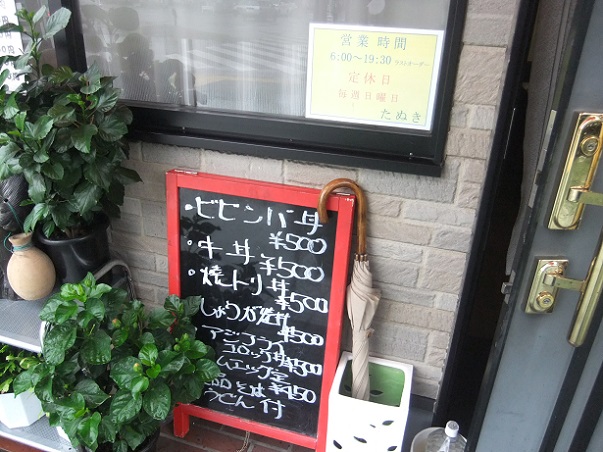 営業時間
6:00～19:30 ラストオーダー
定休日
毎週日曜日
たぬき
・ビビンバ丼
¥500
・牛丼 ¥500
・焼トリ丼
¥500
しょうが焼丼
¥500
アジフライ
コロッケ ¥500
ムエッグ定
そば ¥450
うどん付